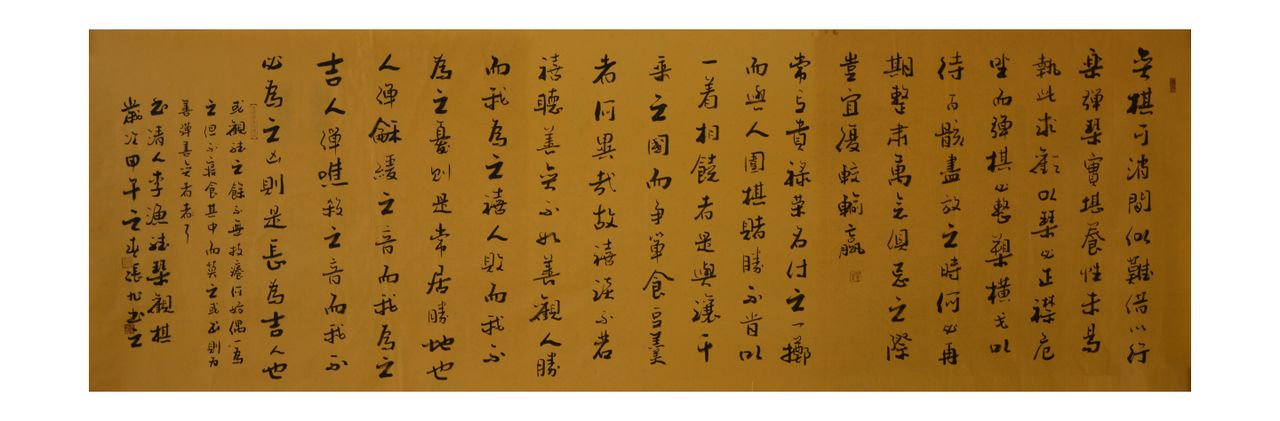 弈棋可消閒似難借以行
樂彈琹實堪養性未易
執此求歡以琴必正襟危
坐而彈棋必整槊橫戈以
待百骸盡放之時何必再
期整肅萬念俱忘之際
豈宜復較輸贏
常与貴祿榮名付之一擲
而與人圍棋賭勝不肯以
一着相饒者是與讓千
乘之國而争箪食豆羹
者何異哉故禧彈不若
禧聽善弈不如善觀人勝
而我為之禧人敗而我不
為之憂則是常居勝地也
人彈龢緩之音而我為之
吉人彈噍殺之音而我不
必為之凶則是長為吉人也
或觀聽之餘不無技癢何妨偶一為
之但不寢食其中而莫之或出則为
善彈善弈者耳
清人李漁聽琹觀棋
歲次甲午之春張書之